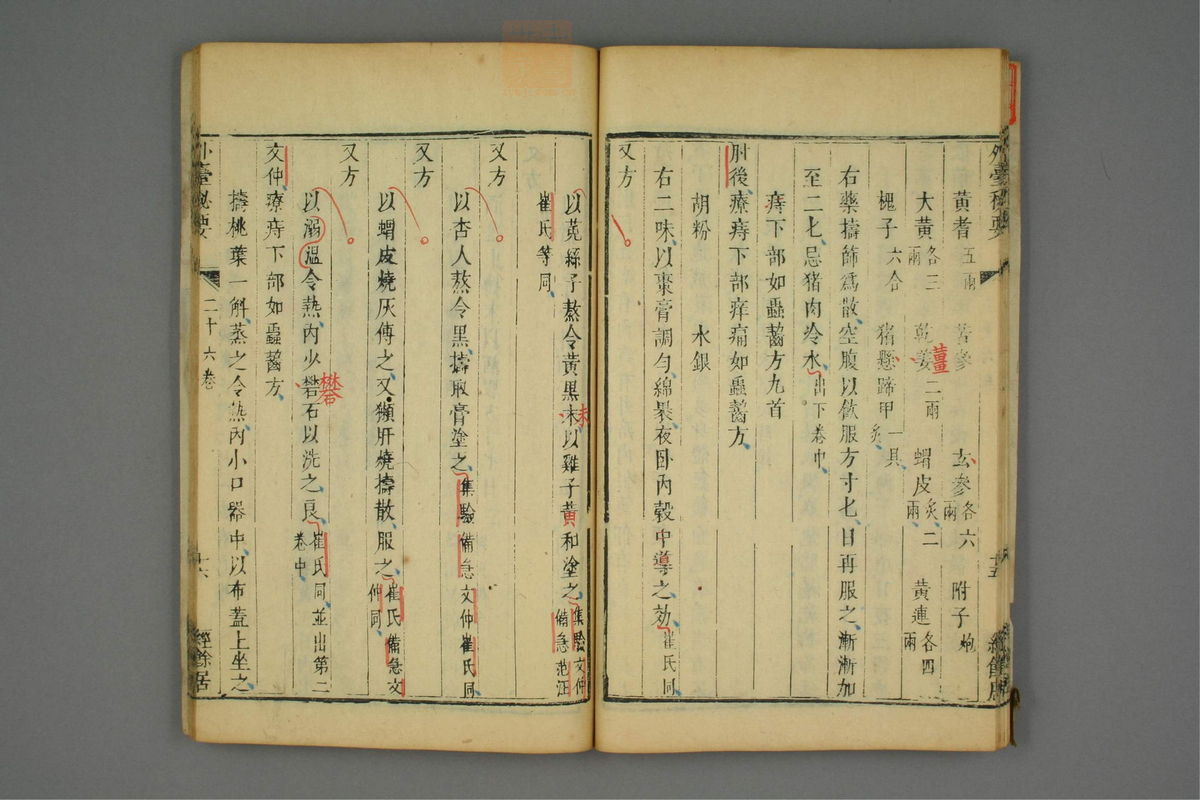 外臺秘要
十五
經餘居
黃耆五兩 苦參 玄參各六兩 附子炮
大黃各三兩 乾姜二兩 蝟皮炙二兩 黃連各四兩
薑
槐子六合 猪懸蹄甲一具炙
右藥擣篩為散空腹以飲服方寸匕日再服之漸漸加
至二匕忌猪肉冷水出下卷中
痔下部如蟲齧方九首
肘後療痔下部痒痛如蟲齧方
胡粉 水銀
右二味以棗膏調勻綿裹夜卧內穀中導之効崔氏同
又方
以菟絲子熬令黃黑末以雞子黃和塗之集驗文仲備急范汪
末
崔氏等同
又方
以杏人熬令黑擣取膏塗之集驗備急文仲崔氏同
又方
以蝟皮燒灰傅之又獺肝燒擣散服之崔氏備急文仲同
又方
以溺溫令熱內少礬石以洗之良崔氏同並出第二卷中
礬
文仲療痔下部如蟲齧方
擣桃葉一斛蒸之令熱內小口器中以布蓋上坐之
外臺秘要
二十六卷
十六
經餘居